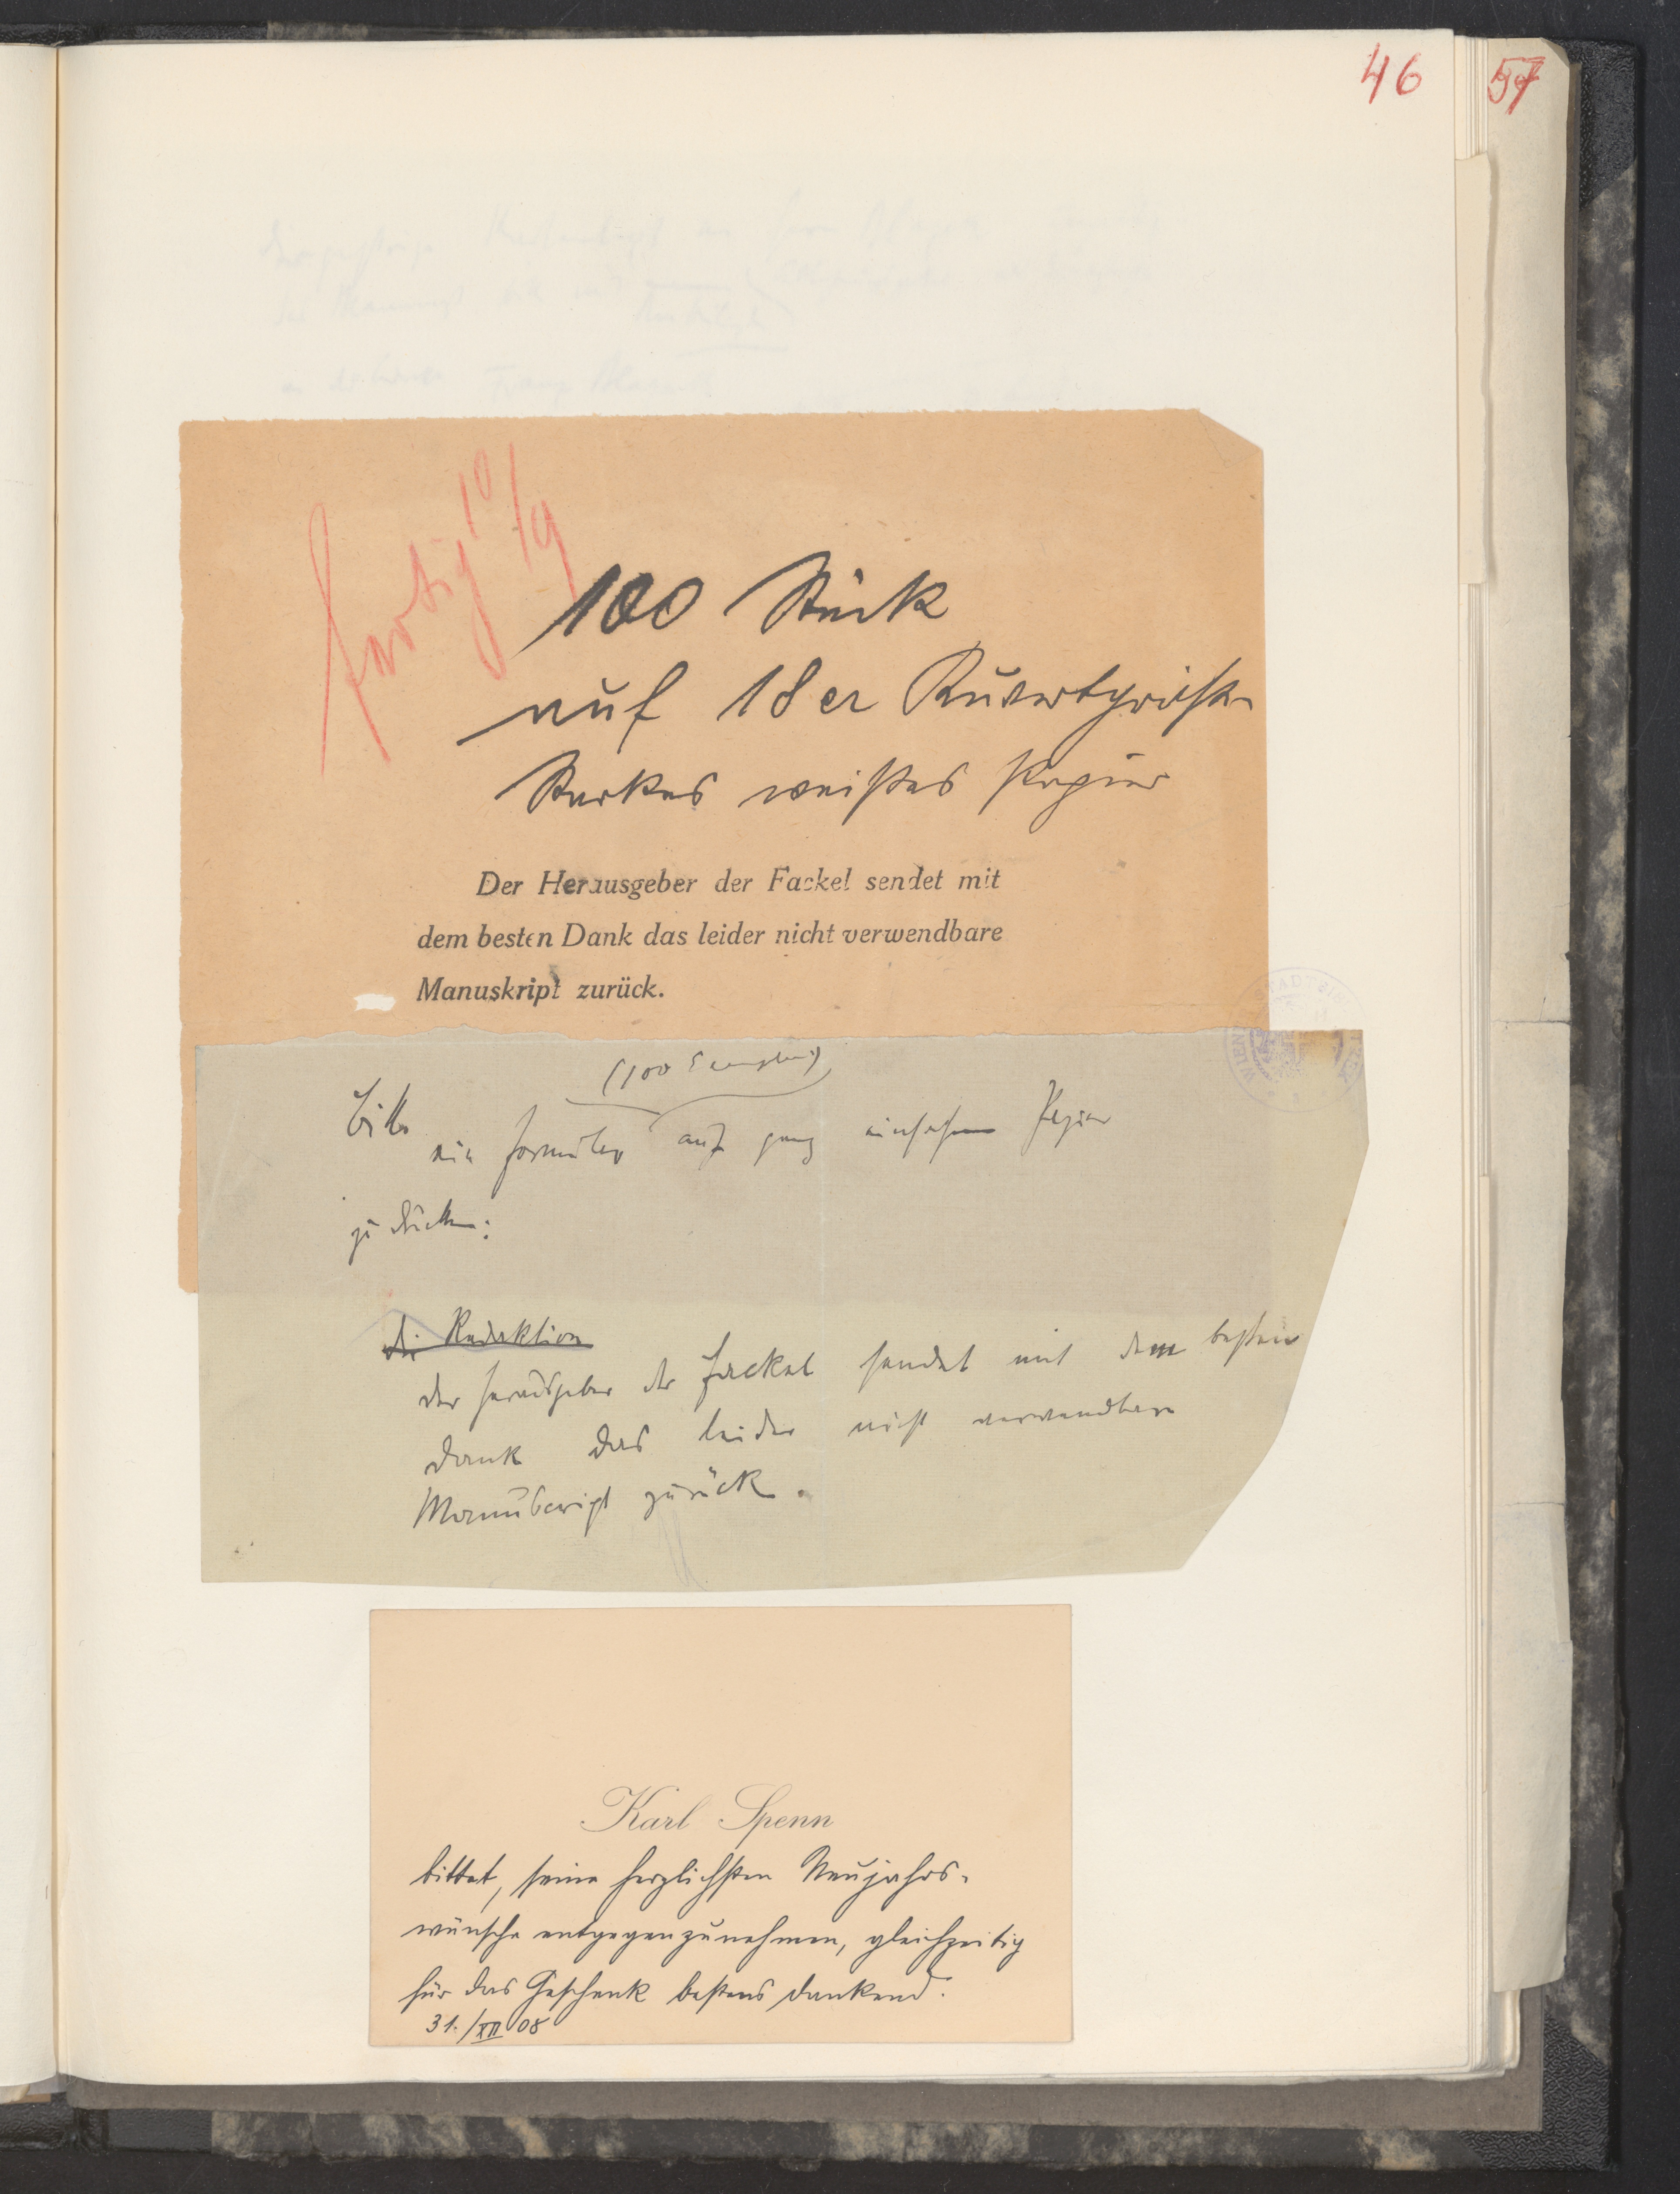 46
57
fertig 10/9
100 Stück
auf 18er Kuvertgröße
Starkes weißes Papier
Der Herausgeber der Fackel sendet mit
dem besten Dank das leider nicht verwendbare
Manuskript zurück.
(100 Exemplare)
Bitte
ein Formular auf ganz einfachem Papier
zu drucken:
Die Redaktion
Der Herausgeber der Fackel sendet mit dem besten
Dank das leider nicht verwendbare
Manuscript zurück.
Karl Spenn
bittet, seine herzlichsten Neujahrs-
wünsche entgegenzunehmen, gleichzeitig
für das Geschenk bestens dankend.
31./XII 08